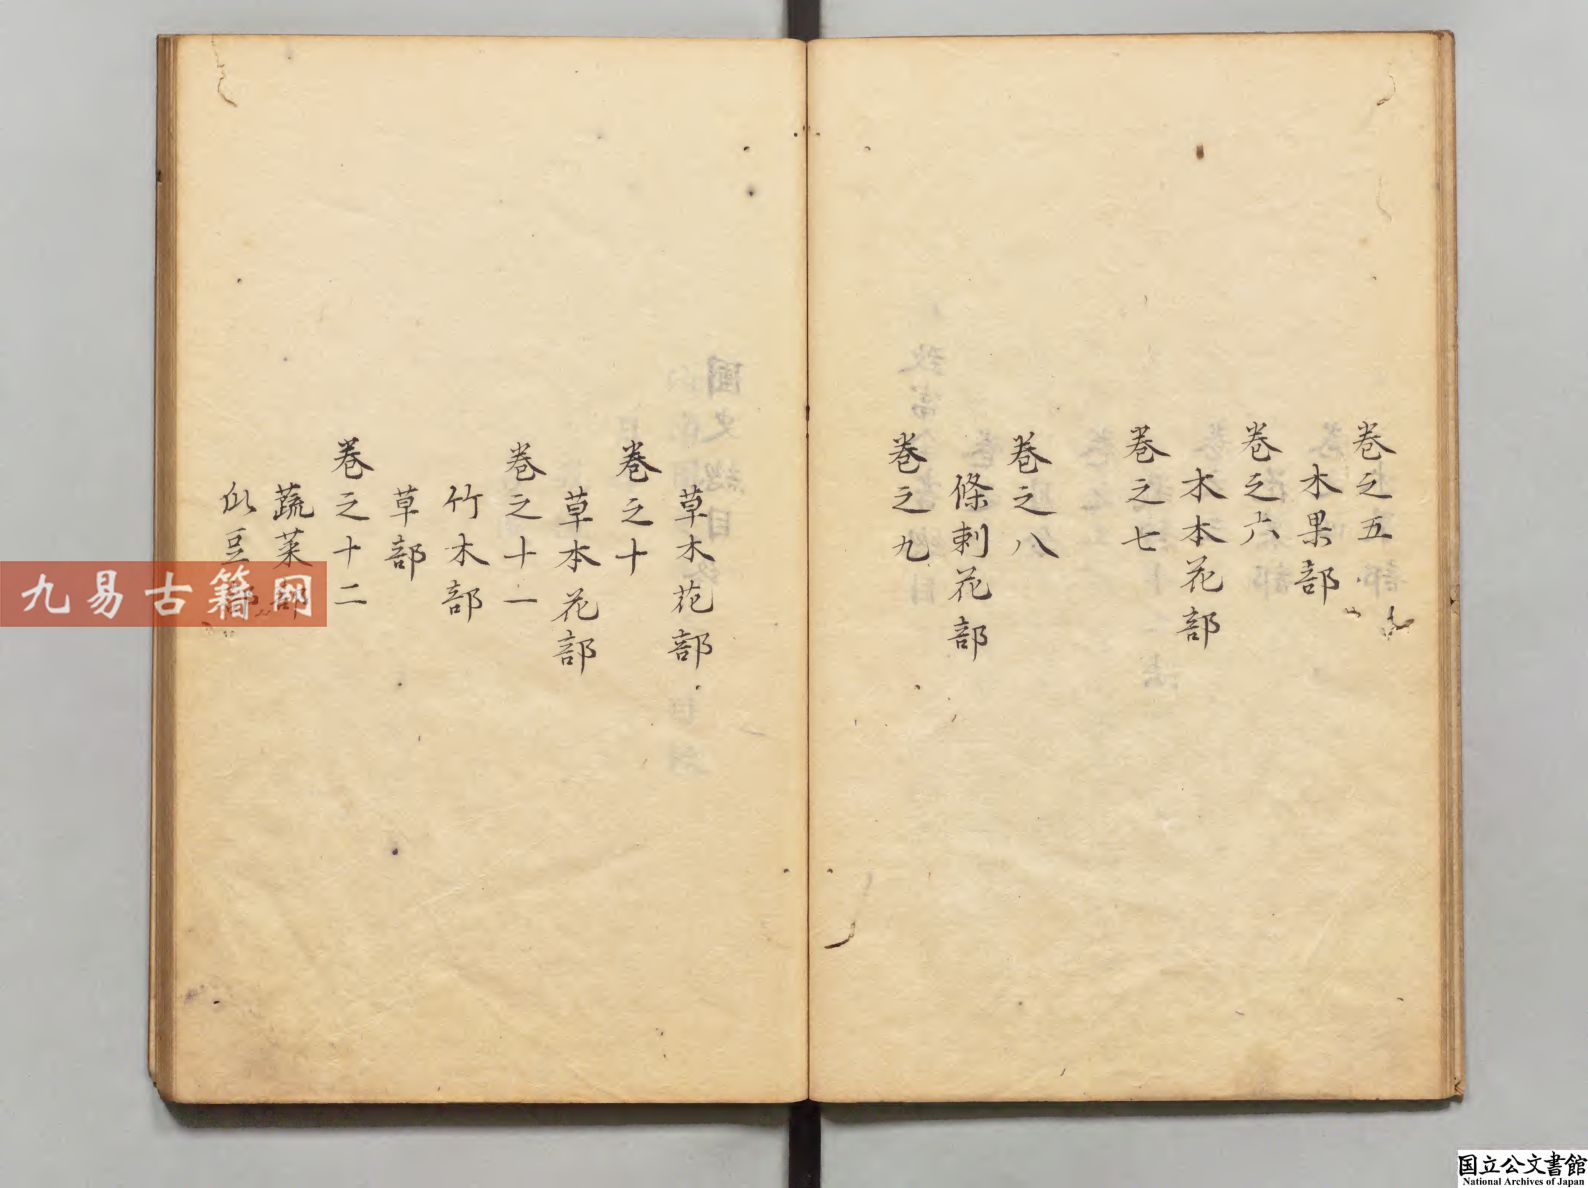 卷之五
木果部
卷之六
木本花部
卷之七
卷之八
條刺花部
卷之九
草木花部
卷之十
草本花部
卷之十一
竹木部
草部
卷之十二
蔬菜部
瓜豆部
九易古籍网
国立公文書館
National Archives of Japan